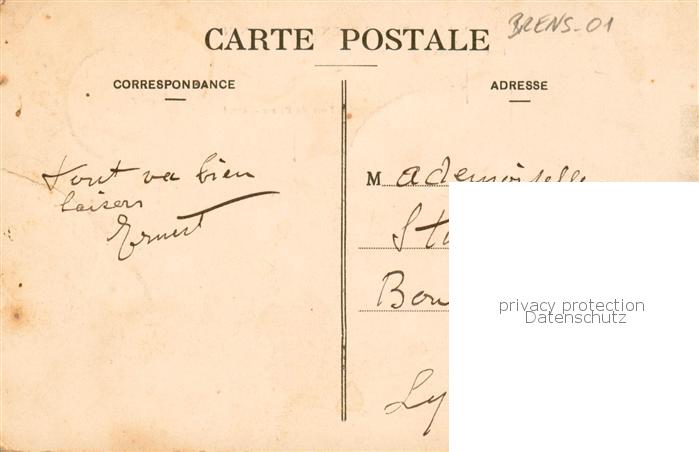 BRENS-01
CARTE POSTALE
CORRESPONDANCE
ADRESSE
Tout va bien
baisers
Ernest
Mademoiselle
St
Bou
Ly
privacy protection
Datenschutz